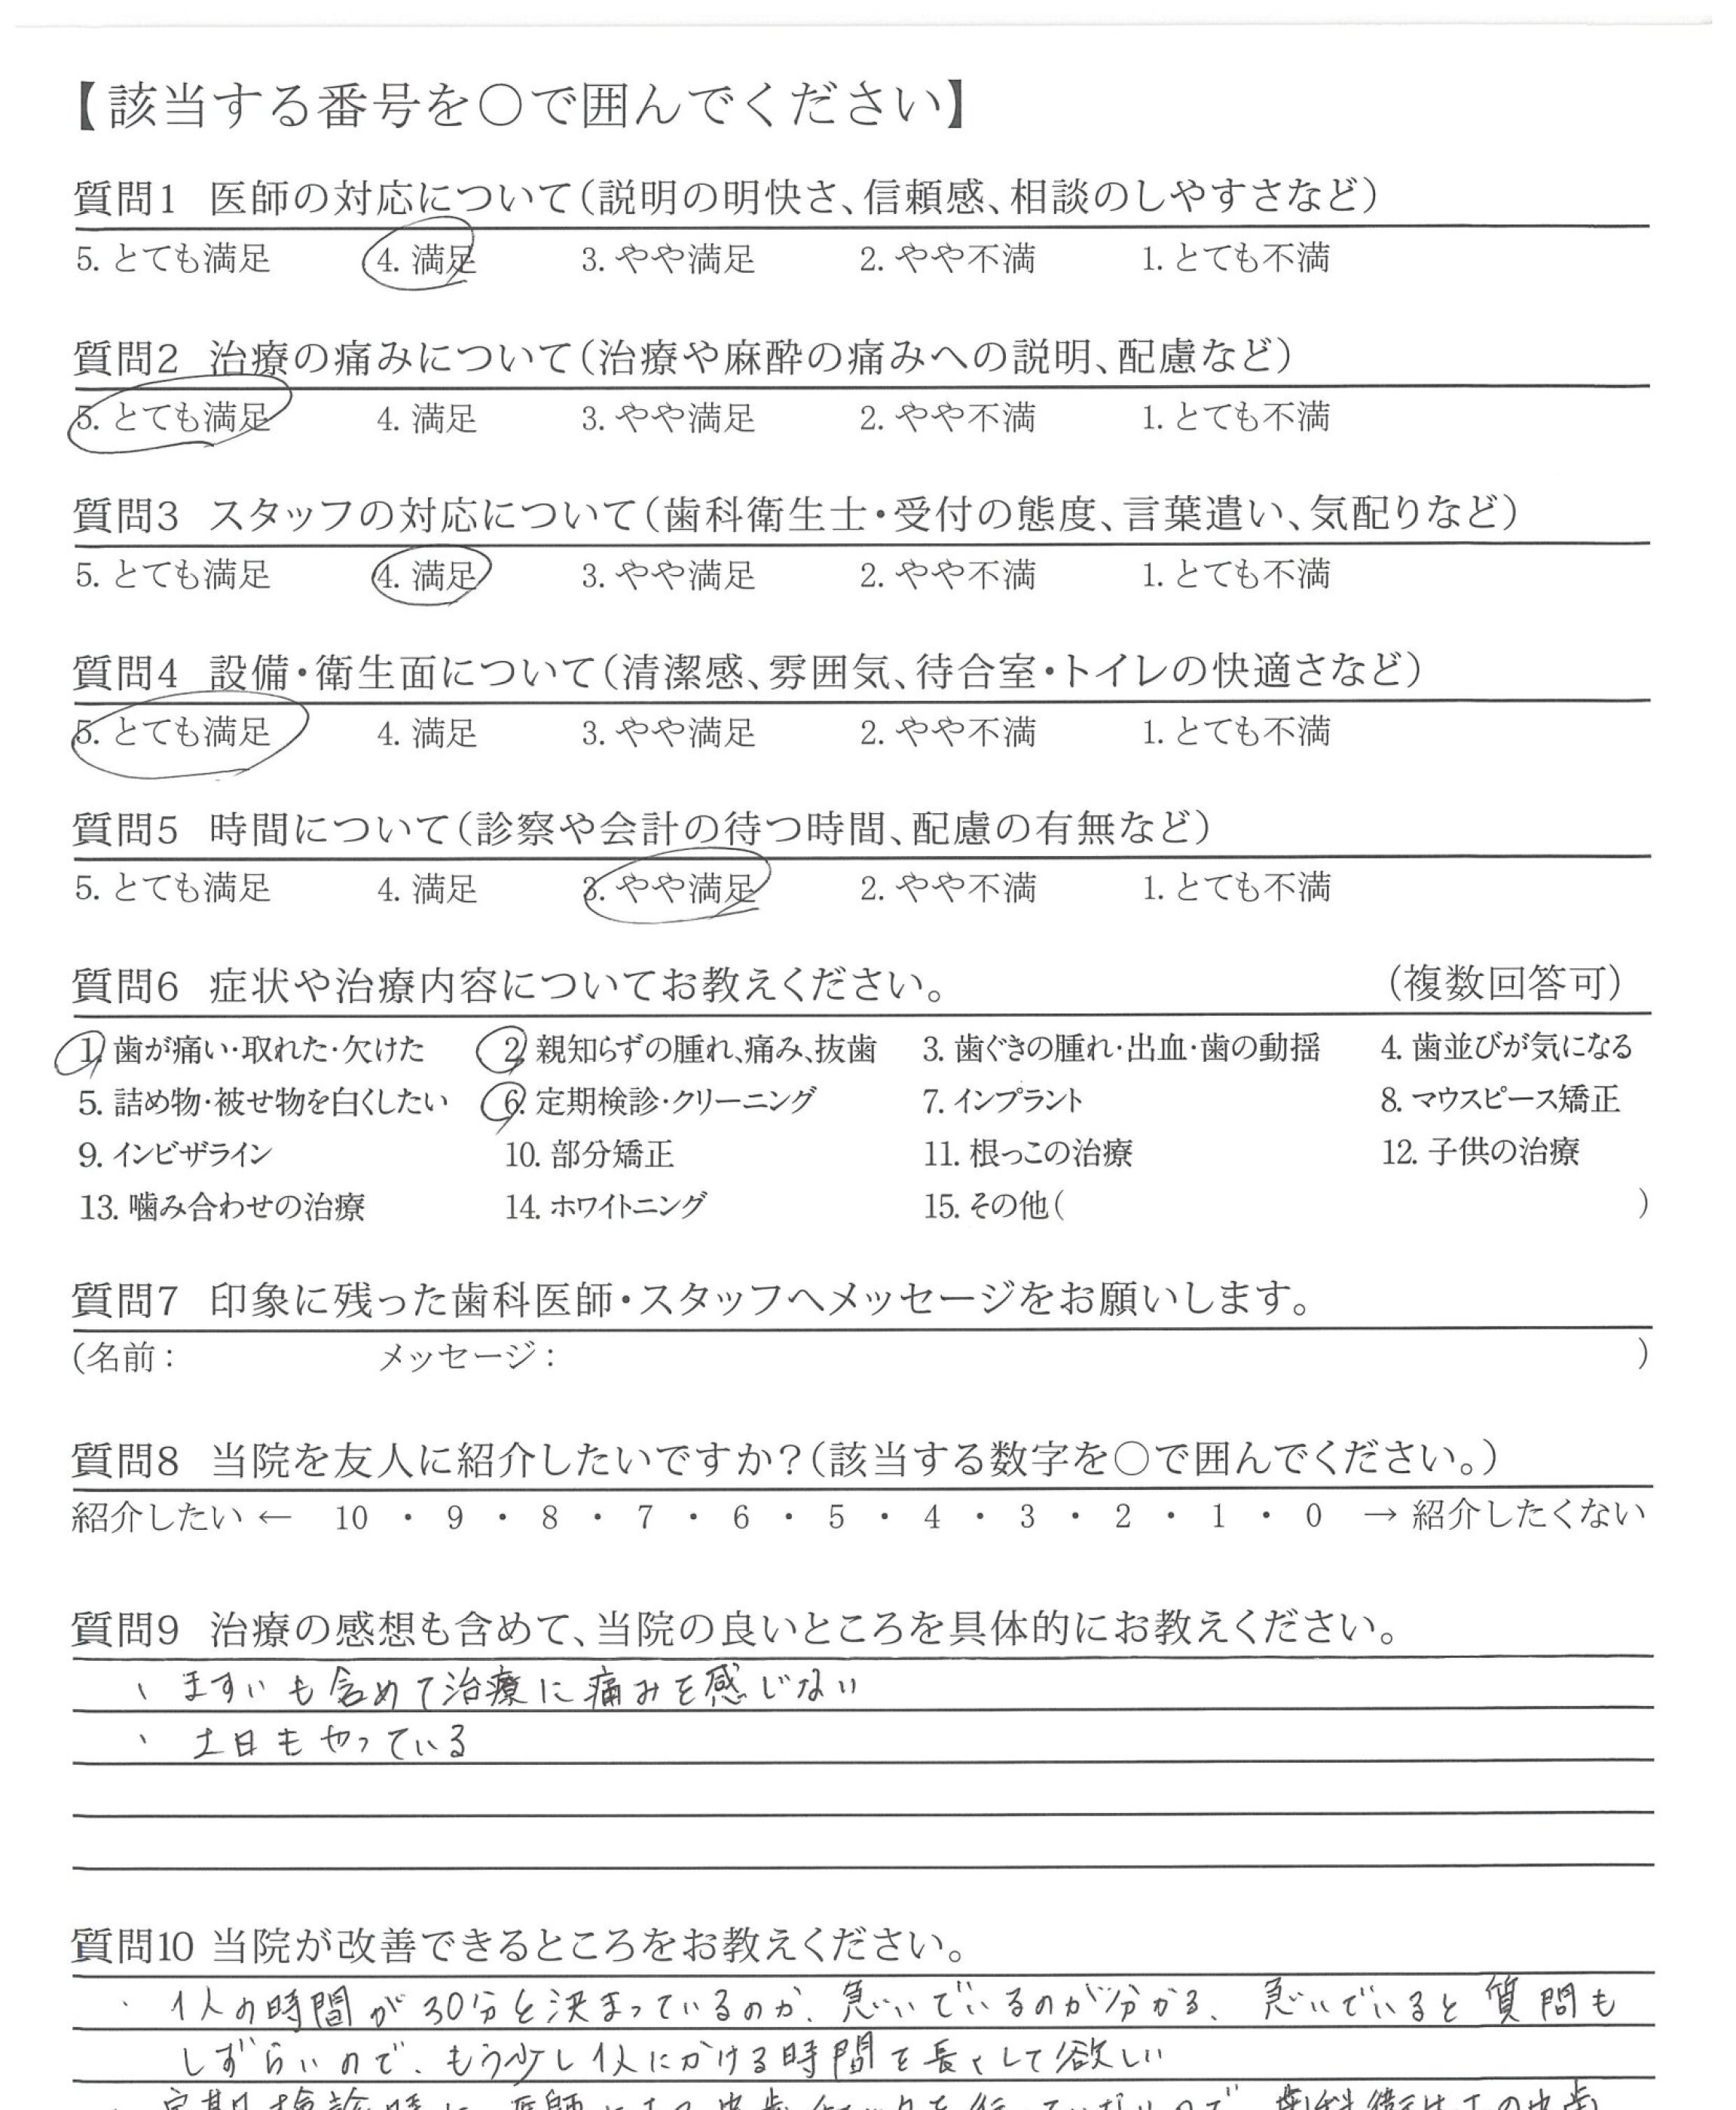 【該当する番号を○で囲んでください】
質問1 医師の対応について(説明の明快さ、信頼感、相談のしやすさなど)
5. とても満足 4. 満足 3. やや満足 2. やや不満 1. とても不満
質問2 治療の痛みについて(治療や麻酔の痛みへの説明、配慮など)
5. とても満足 4. 満足 3. やや満足 2. やや不満 1. とても不満
質問3 スタッフの対応について(歯科衛生士・受付の態度、言葉遣い、気配りなど)
5. とても満足 4. 満足 3. やや満足 2. やや不満 1. とても不満
質問4 設備・衛生面について(清潔感、雰囲気、待合室・トイレの快適さなど)
5. とても満足 4. 満足 3. やや満足 2. やや不満 1. とても不満
質問5 時間について(診察や会計の待つ時間、配慮の有無など)
5. とても満足 4. 満足 3. やや満足 2. やや不満 1. とても不満
質問6 症状や治療内容についてお教えください。 (複数回答可)
1. 歯が痛い・取れた・欠けた 2. 親知らずの腫れ、痛み、抜歯 3. 歯ぐきの腫れ・出血・歯の動揺 4. 歯並びが気になる
5. 詰め物・被せ物を白くしたい 6. 定期検診・クリーニング 7. インプラント 8. マウスピース矯正
9. インビザライン 10. 部分矯正 11. 根っこの治療 12. 子供の治療
13. 噛み合わせの治療 14. ホワイトニング 15. その他( )
質問7 印象に残った歯科医師・スタッフへメッセージをお願いします。
(名前: メッセージ: )
質問8 当院を友人に紹介したいですか?(該当する数字を○で囲んでください。)
紹介したい ← 10 ・ 9 ・ 8 ・ 7 ・ 6 ・ 5 ・ 4 ・ 3 ・ 2 ・ 1 ・ 0 → 紹介したくない
質問9 治療の感想も含めて、当院の良いところを具体的にお教えください。
、ますいも含めて治療に痛みを感じない
、土日もやっている
質問10 当院が改善できるところをお教えください。
・1人の時間が30分と決まっているのか、急いでいるのが分かる、急いでいると質問も
しずらいので、もう少し1人にかける時間を長くして欲しい
・定期検診時に、医師による虫歯チェックを行っていないので、歯科衛生士の虫歯